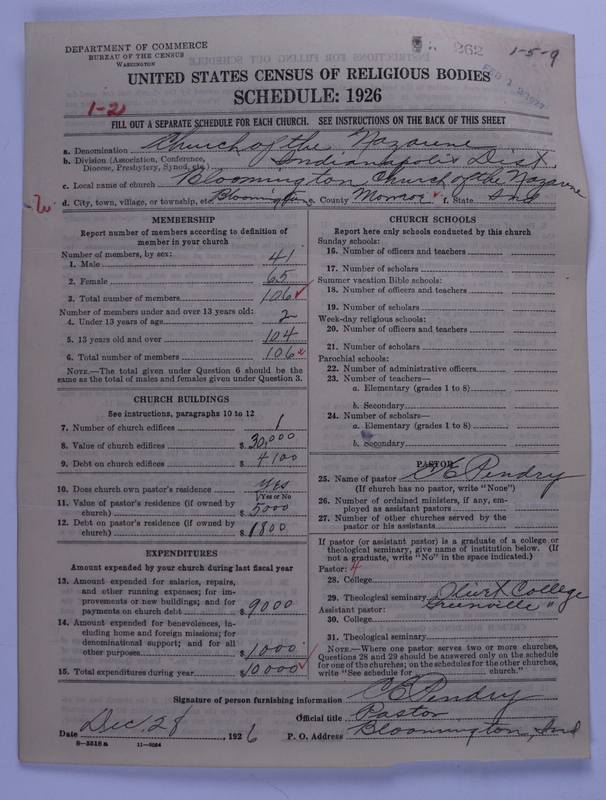 DEPARTMENT OF COMMERCE
BUREAU OF THE CENSUS
WASHINGTON
262
1-5-9
UNITED STATES CENSUS OF RELIGIOUS BODIES
SCHEDULE: 1926
1-2
FILL OUT A SEPARATE SCHEDULE FOR EACH CHURCH. SEE INSTRUCTIONS ON THE BACK OF THIS SHEET
a. Denomination Church of the Nazarene
b. Division (Association, Conference, Diocese, Presbytery, Synod, etc.) Indianapolis Dist.
c. Local name of church Bloomington Church of the Nazarene
d. City, town, village, or township, etc. Bloomington e. County Monroe f. State Ind
MEMBERSHIP
Report number of members according to definition of member in your church
Number of members, by sex:
1. Male 41
2. Female 65
3. Total number of members 106
Number of members under and over 13 years old:
4. Under 13 years of age 2
5. 13 years old and over 104
6. Total number of members 106
NOTE.—The total given under Question 6 should be the same as the total of males and females given under Question 3.
CHURCH BUILDINGS
See instructions, paragraphs 10 to 12
7. Number of church edifices 1
8. Value of church edifices $30,000
9. Debt on church edifices $4100
10. Does church own pastor's residence Yes
(Yes or No
11. Value of pastor's residence (if owned by church) $5000
12. Debt on pastor's residence (if owned by church) $1800
EXPENDITURES
Amount expended by your church during last fiscal year
13. Amount expended for salaries, repairs, and other running expenses; for improvements or new buildings; and for payments on church debt $9000
14. Amount expended for benevolences, including home and foreign missions; for denominational support; and for all other purposes $1000
15. Total expenditures during year $10000
CHURCH SCHOOLS
Report here only schools conducted by this church
Sunday schools:
16. Number of officers and teachers
17. Number of scholars
Summer vacation Bible schools:
18. Number of officers and teachers
19. Number of scholars
Week-day religious schools:
20. Number of officers and teachers
21. Number of scholars
Parochial schools:
22. Number of administrative officers
23. Number of teachers—
a. Elementary (grades 1 to 8)
b. Secondary
24. Number of scholars—
a. Elementary (grades 1 to 8)
b. Secondary
PASTOR
25. Name of pastor C E Pendry
(If church has no pastor, write "None")
26. Number of ordained ministers, if any, employed as assistant pastors
27. Number of other churches served by the pastor or his assistants
If pastor (or assistant pastor) is a graduate of a college or theological seminary, give name of institution below. (If not a graduate, write "No" in the space indicated.)
Pastor: 4
28. College
29. Theological seminary Olivet College
Assistant pastor: Greenville "
30. College
31. Theological seminary
NOTE.—Where one pastor serves two or more churches, Questions 28 and 29 should be answered only on the schedule for one of the churches; on the schedules for the other churches, write "See schedule for church."
Signature of person furnishing information C E Pendry
Official title Pastor
Date Dec. 28, 1926 P. O. Address Bloomington, Ind
8—3318 a 11—9024